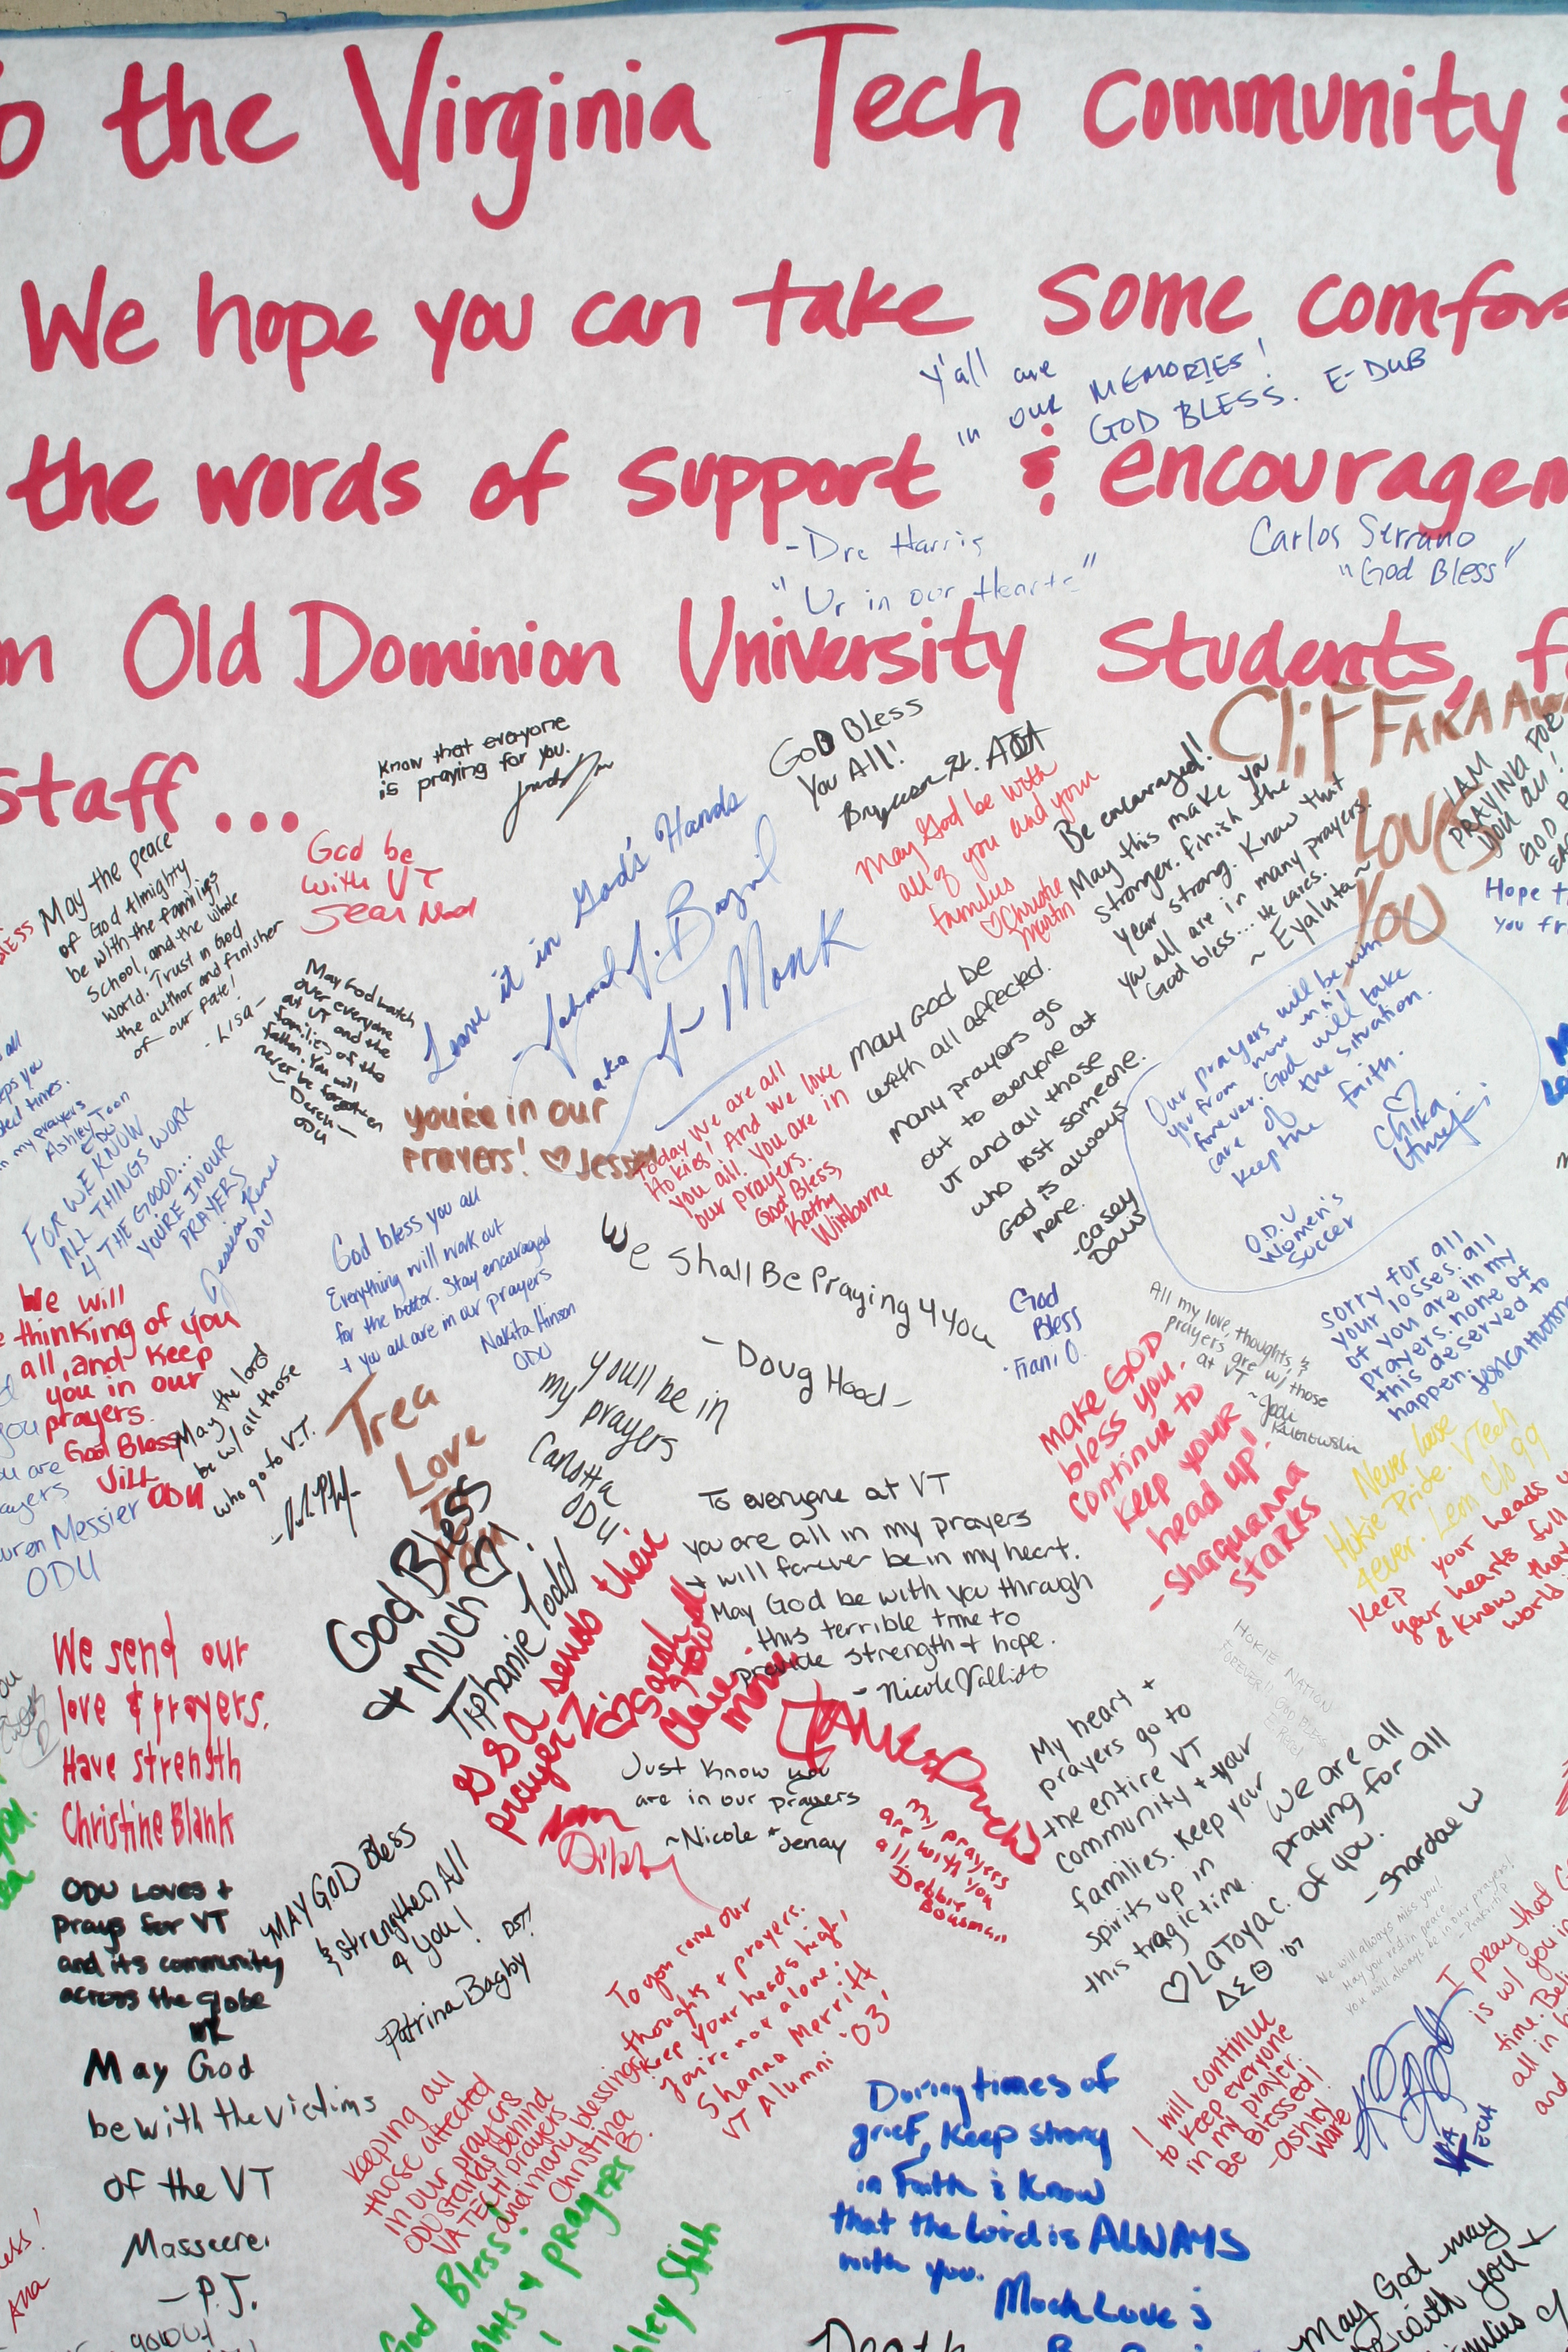 o the Virginia Tech community
We hope you can take some comfor
the words of support & encouragem
m Old Dominion University Students, f
staff...
Y'all are
in our MEMORIES!
GOD BLESS. E-DUB
-Dre Harris
"Ur in our Hearts"
Carlos Serrano
"God Bless"
Know that everyone
is praying for you.
GOD BLESS
You All!
CliFF AKA
Loves
You
I AM
PRAYING FOR
YOU All!
May the peace
of God Almighty
be with the families
School, and the whole
world. Trust in God
the author and finisher
of our fate!
-Lisa-
God be
with VT
Sean
Leave it in God's Hands
aka
Monk
May God be with
all of you and your
families
♡ Christie
Martin
Be encouraged!
May this make you
stronger. finish the
year strong. Know that
you all are in many prayers.
God bless... He cares.
~ Eyaluta ~
Hope t
you fr
May God watch
over everyone
at VT and the
families of the
fallen. You will
never be forgotten
- Derek
ODU
you're in our
prayers! ♡ Jess
Today We are all
Hokies! And we love
you all. You are in
our prayers.
God Bless,
Kathy
Winborne
May God be
with all affected.
many prayers go
out to everyone at
VT and all those
who lost someone.
God is always
here.
-Casey
Davis
Our prayers will be with
you from now until
forever. God will take
care of the situation.
Keep the faith.
♡
Chika
O.D.U
Women's
Soccer
n my prayers
Ashley Toon
FOR WE KNOW
ALL THINGS WORK
4 THE GOOD...
YOURE IN OUR
PRAYERS
ODU
God bless you all
Everything will work out
for the better. Stay encouraged
+ you all are in our prayers
Nakita Hinson
ODU
We shall Be Praying 4 you
- Doug Hood -
God
Bless
-Frani O.
All my love, thoughts, &
prayers are w/ those
at VT
~Jodi
sorry for all
your losses. all
of you are in my
prayers. none of
this deserved to
happen.
Jessica
We will
e thinking of you
all, and keep
you in our
prayers.
God Bless
Will
ODU
May the lord
be w/ all those
who go to V.T.
Trea
Love
you'll be in
my prayers
Carlotta
ODU
Make GOD
bless you.
continue to
keep your
head up!
-Shaquanna
Starks
Never loose
Hokie Pride. VTech
4ever. Leon C/o 99
Keep your heads u
your hearts full
& know that
world
uren Messier
ODU
God Bless
+ much ♡!
Tiphanie Todd
To everyone at VT
you are all in my prayers
+ will forever be in my heart.
May God be with you through
this terrible time to
provide strength + hope.
- Nicole
GSA sends their
prayerz!
♡ Sarah
HOKIE NATION
FOREVER!! GOD BLESS
We send our
love & prayers.
Have strength
Christine Blank
Just know you
are in our prayers
~Nicole + Jenay
My prayers
are with you
all
Debbie
Bowman
My heart +
prayers go to
the entire VT
community + your
families. Keep your
spirits up in
this tragic time.
♡ LaToya C.
ΔΣΘ '07
We are all
praying for all
of you.
- Shardae W
ODU Loves +
prays for VT
and its community
across the globe
MAY GOD Bless
& strengthen All
4 you!
DST!
Patrina Bagby
To you come our
thoughts + prayers.
Keep your heads high,
you're not alone.
Shanna Merritt
VT Alumni '03'
We will always miss you!
May you rest in peace
You will always be in our prayers!
I pray that G
is w/ you i
time. Be
all in
and
May God
be with the victims
of the VT
Masseere.
- P.J.
Keeping all
those affected
in our prayers
ODU stands behind
VA TECH prayers
and many blessings
Christina
B.
I will continue
to keep everyone
in my prayer.
Be Blessed!
-Ashley
Ware
VA
TECH
During times of
grief, Keep strong
in Faith & Know
that the Lord is ALWAYS
with you.
Much Love &
God Bless!
ghts + prayers
Death
May God may
with you +
milies of